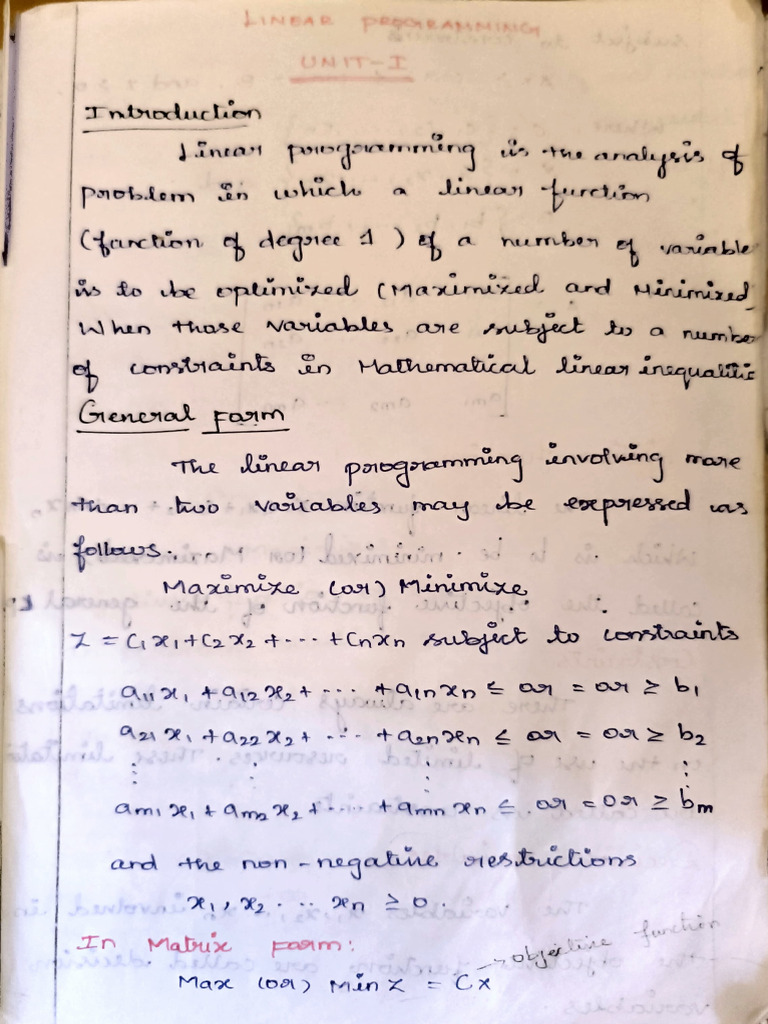 LINEAR PROGRAMMING
UNIT-I
Introduction
Linear programming is the analysis of
problem in which a linear function
(function of degree 1 ) of a number of variable
is to be optimized (Maximized and Minimized
When those variables are subject to a number
of constraints in Mathematical linear inequalitie
General Form
The linear programming involving more
than two variables may be expressed as
follows.
Maximize (or) Minimize
Z = C₁x₁ + C₂x₂ + ··· + Cnxn subject to constraints
a₁₁x₁ + a₁₂x₂ + ··· + a₁nxn ≤ or = or ≥ b₁
a₂₁x₁ + a₂₂x₂ + ··· + a₂nxn ≤ or = or ≥ b₂
⋮ ⋮ ⋮ ⋮
am₁x₁ + am₂x₂ + ···· + amnxn ≤ or = or ≥ bm
and the non-negative restrictions
x₁, x₂ ··· xn ≥ 0.
In Matrix form:
Max (or) Min Z = Cx → objective function